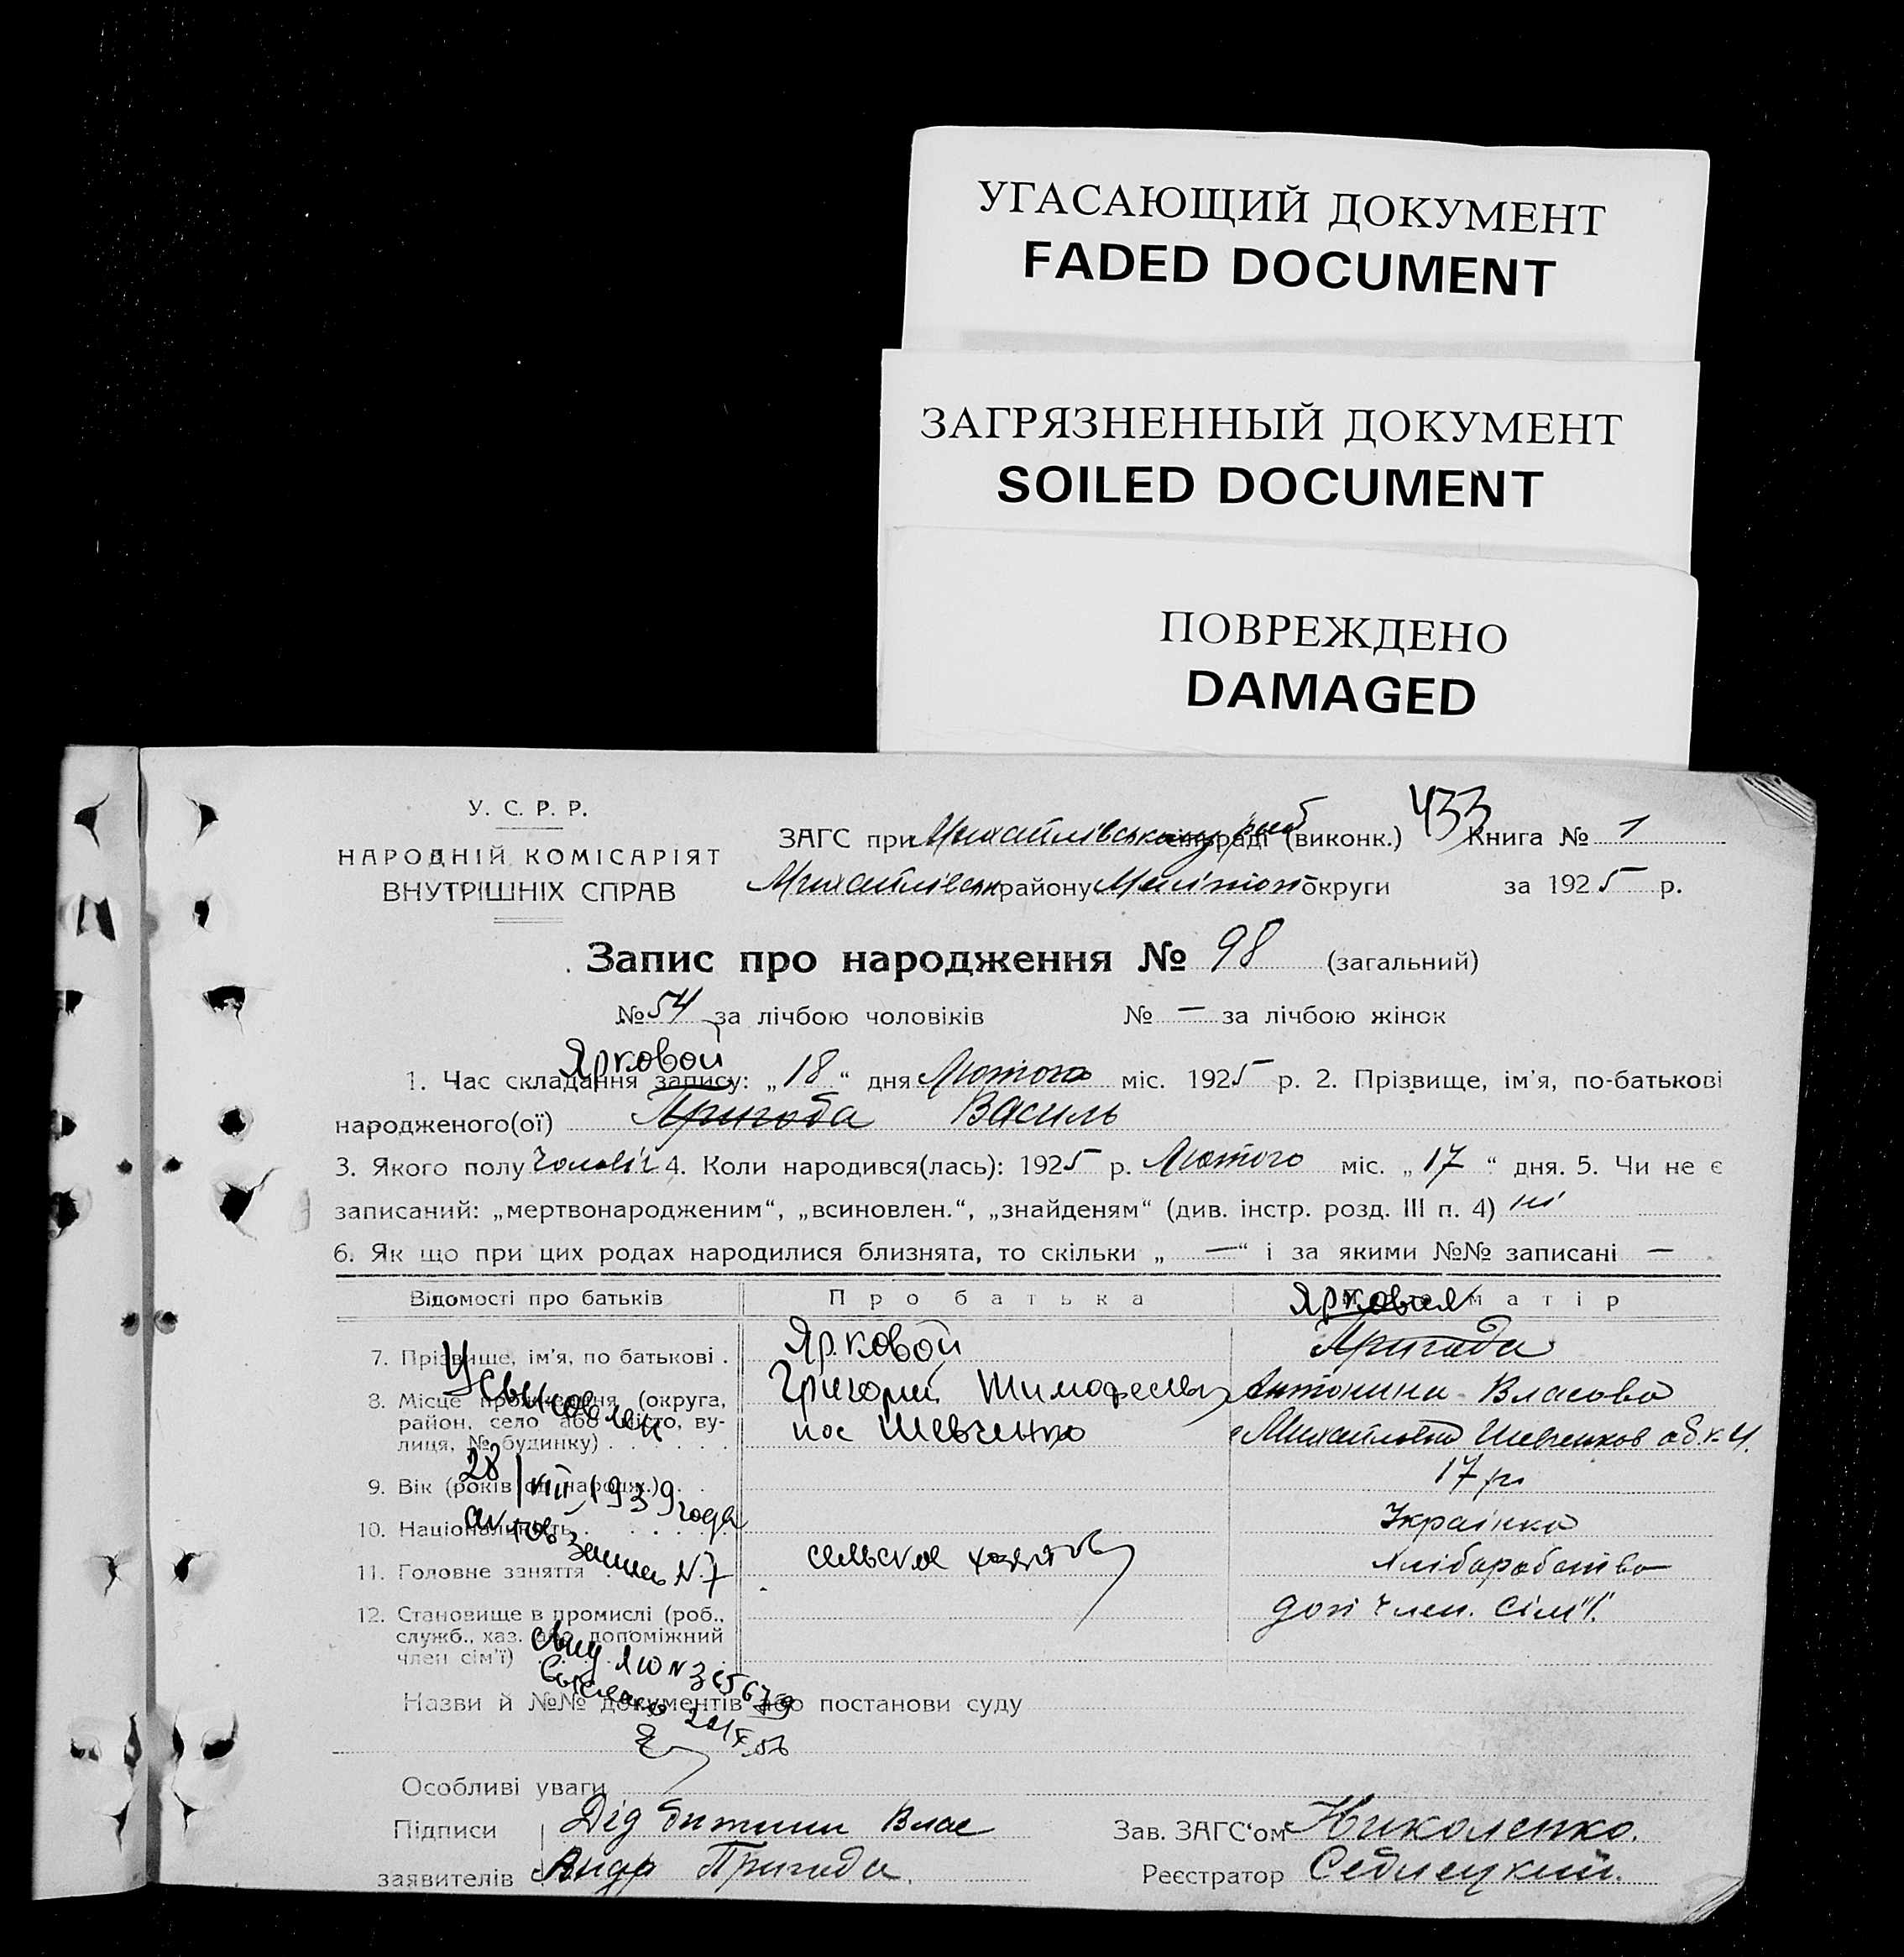 УГАСАЮЩИЙ ДОКУМЕНТ
FADED DOCUMENT
ЗАГРЯЗНЕННЫЙ ДОКУМЕНТ
SOILED DOCUMENT
ПОВРЕЖДЕНО
DAMAGED
У. С. Р. Р.
НАРОДНІЙ КОМІСАРІЯТ
ВНУТРІШНІХ СПРАВ
433
ЗАГС при Михайлівському раб (виконк.) Книга № 1
Михайлівськ району Меліноп округи за 1925 р.
Запис про народження № 98 (загальний)
№ 54 за лічбою чоловіків № — за лічбою жінок
Ярковой
1. Час складання запису: „18“ дня Лютого міс. 1925 р. 2. Прізвище, ім’я, по-батькові
народженого(ої) Пригода Василь
3. Якого полу чоловіч 4. Коли народився(лась): 1925 р. Лютого міс. „17“ дня. 5. Чи не є
записаний: „мертвонародженим“, „всиновлен.“, „знайденям“ (див. інстр. розд. III п. 4) ні
6. Як що при цих родах народилися близнята, то скільки „—“ і за якими №№ записані —
Відомості про батьків Про батька матір
Ярковая
7. Прізвище, ім’я, по батькові . Ярковой Пригода
Григорий Тимофеевич Антонина Власова
8. Місце проживання (округа,
район, село або місто, ву-
лиця, № будинку) . . . . . . пос Шевченко Шевченков
Усыновлен
28/VIII 1939 года
актов запись № 7
9. Вік (років од народж.) . 17 р.
10. Національність . . . . . Українка
11. Головне заняття . . . сельское Хліборобство
12. Становище в промислі (роб.,
служб., хаз. або допоміжний
член сім’ї) доп член. сім'ї
Назви й №№ документів або постанови суду
Особливі уваги
Підписи Дід дитини Влас
заявителів Андр Пригода.
Зав. ЗАГС‘ом Николенко.
Реєстратор Седлецкий.